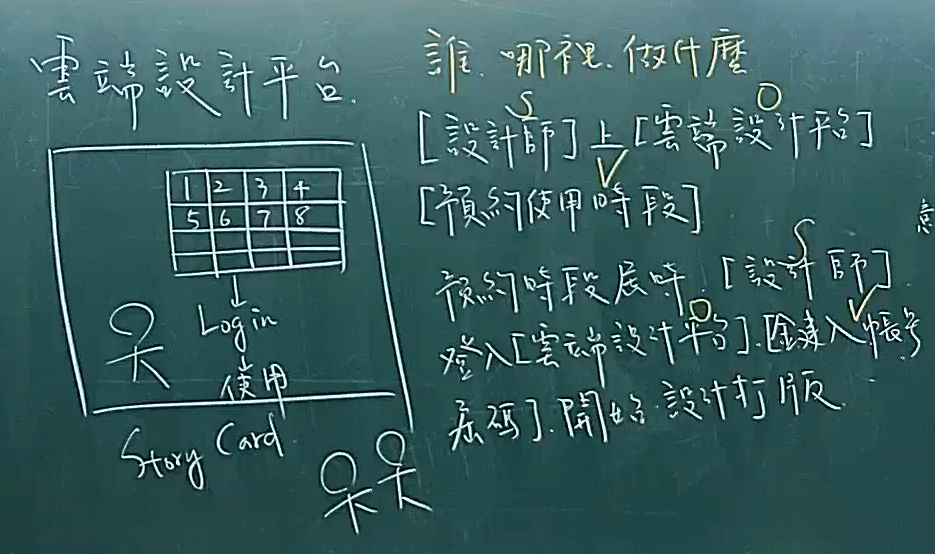 雲端設計平台.
1 2 3 4
5 6 7 8
Login
使用
Story Card
誰.哪裡.做什麼
S O
[設計師]上[雲端設計平台]
V
[預約使用時段]
S
預約時段屆時.[設計師]
O V
登入[雲端設計平台].[鍵入帳号
密碼].開始設計打版.
意